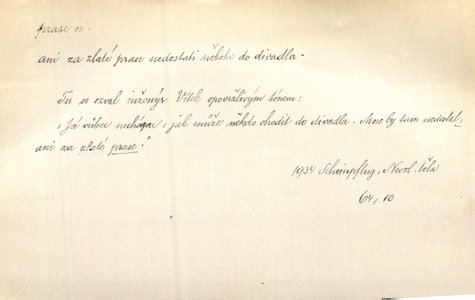 prase n.
ani za zlaté prase nedostati někoho do divadla -
Tu se ozval inženýr Vítek opovržlivým tónem:
„Já vůbec nechápu, jak může někdo chodit do divadla. Mne by tam nedostal,
ani za zlaté prase."
1934 Scheinpflug, Nevol. těla
64, 10